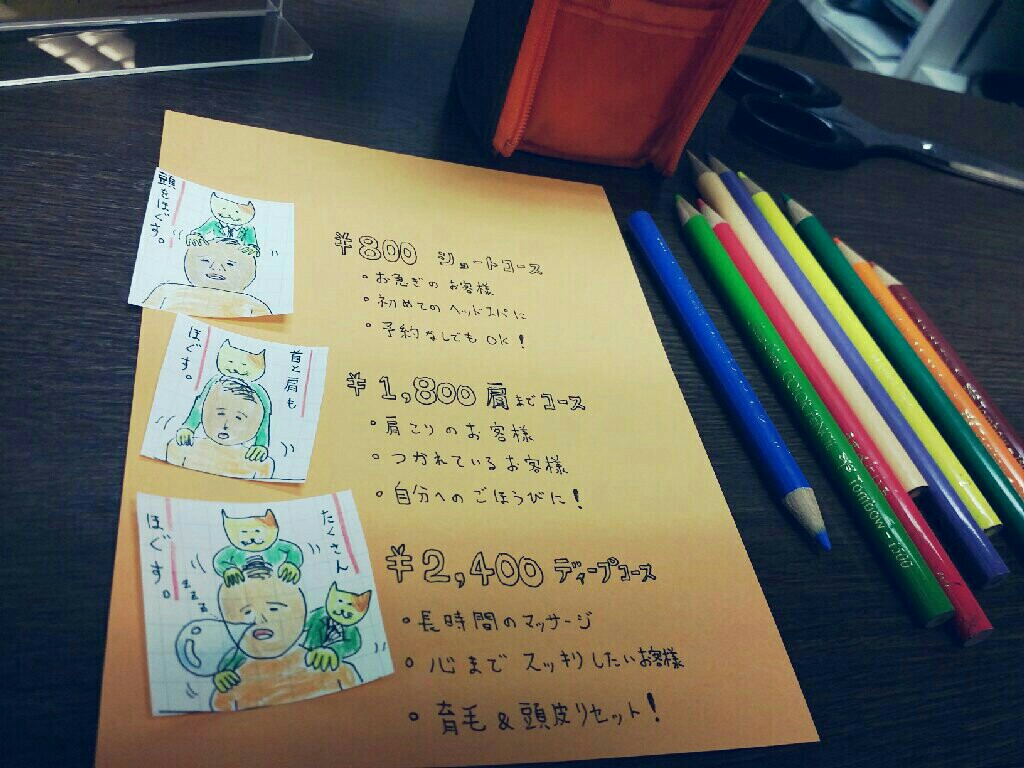 頭をほぐす。
¥800 ショートコース
・お急ぎのお客様
・初めてのヘッドスパに
・予約なしでもOK！
首と肩も
ほぐす。
¥1,800 肩までコース
・肩こりのお客様
・つかれているお客様
・自分へのごほうびに！
たくさん
ほぐす。
¥2,400 ディープコース
・長時間のマッサージ
・心までスッキリしたいお客様
・育毛＆頭皮リセット！
Tombow-1500